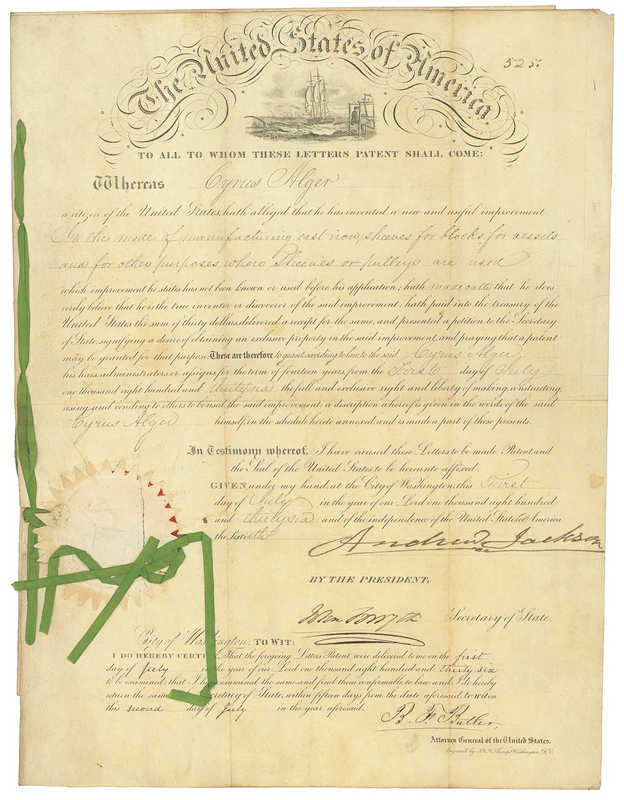 The United States of America
525.
TO ALL TO WHOM THESE LETTERS PATENT SHALL COME:
Whereas Cyrus Alger
a citizen of the United States, hath alleged that he has invented a new and useful improvement
In the mode of manufacturing cast iron, sheeves for blocks for vessels
and for other purposes where Sheeves or pulleys are used
which improvement he states has not been known or used before his application; hath made oath that he does
verily believe that he is the true inventor or discoverer of the said improvement; hath paid into the treasury of the
United States the sum of thirty dollars, delivered a receipt for the same, and presented a petition to the Secretary
of State, signifying a desire of obtaining an exclusive property in the said improvement, and praying that a patent
may be granted for that purpose. These are therefore to grant, according to law, to the said Cyrus Alger
his heirs, administrators or assigns, for the term of fourteen years, from the First day of July
one thousand eight hundred and thirty six the full and exclusive right and liberty of making, constructing,
using, and vending to others to be used, the said improvement; a description whereof is given in the words of the said
Cyrus Alger himself, in the schedule hereto annexed, and is made a part of these presents.
In Testimony whereof, I have caused these Letters to be made Patent, and
the Seal of the United States to be hereunto affixed.
GIVEN under my hand, at the City of Washington, this First
day of July in the year of our Lord one thousand eight hundred
and thirty six and of the independence of the United States of America
the Sixtieth
Andrew Jackson
BY THE PRESIDENT.
John Forsyth Secretary of State.
City of Washington, TO WIT:
I DO HEREBY CERTIFY, That the foregoing Letters Patent were delivered to me on the first
day of July in the year of our Lord one thousand eight hundred and thirty six
to be examined; that I have examined the same, and find them conformable to law; and I do hereby
return the same Secretary of State, within fifteen days from the date aforesaid, to wit: on
this second day of July in the year aforesaid.
B. F. Butler,
Attorney General of the United States.
Engraved by Washington, D.C.